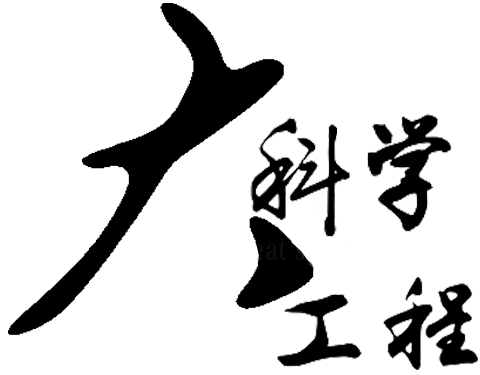 大
科学
工程